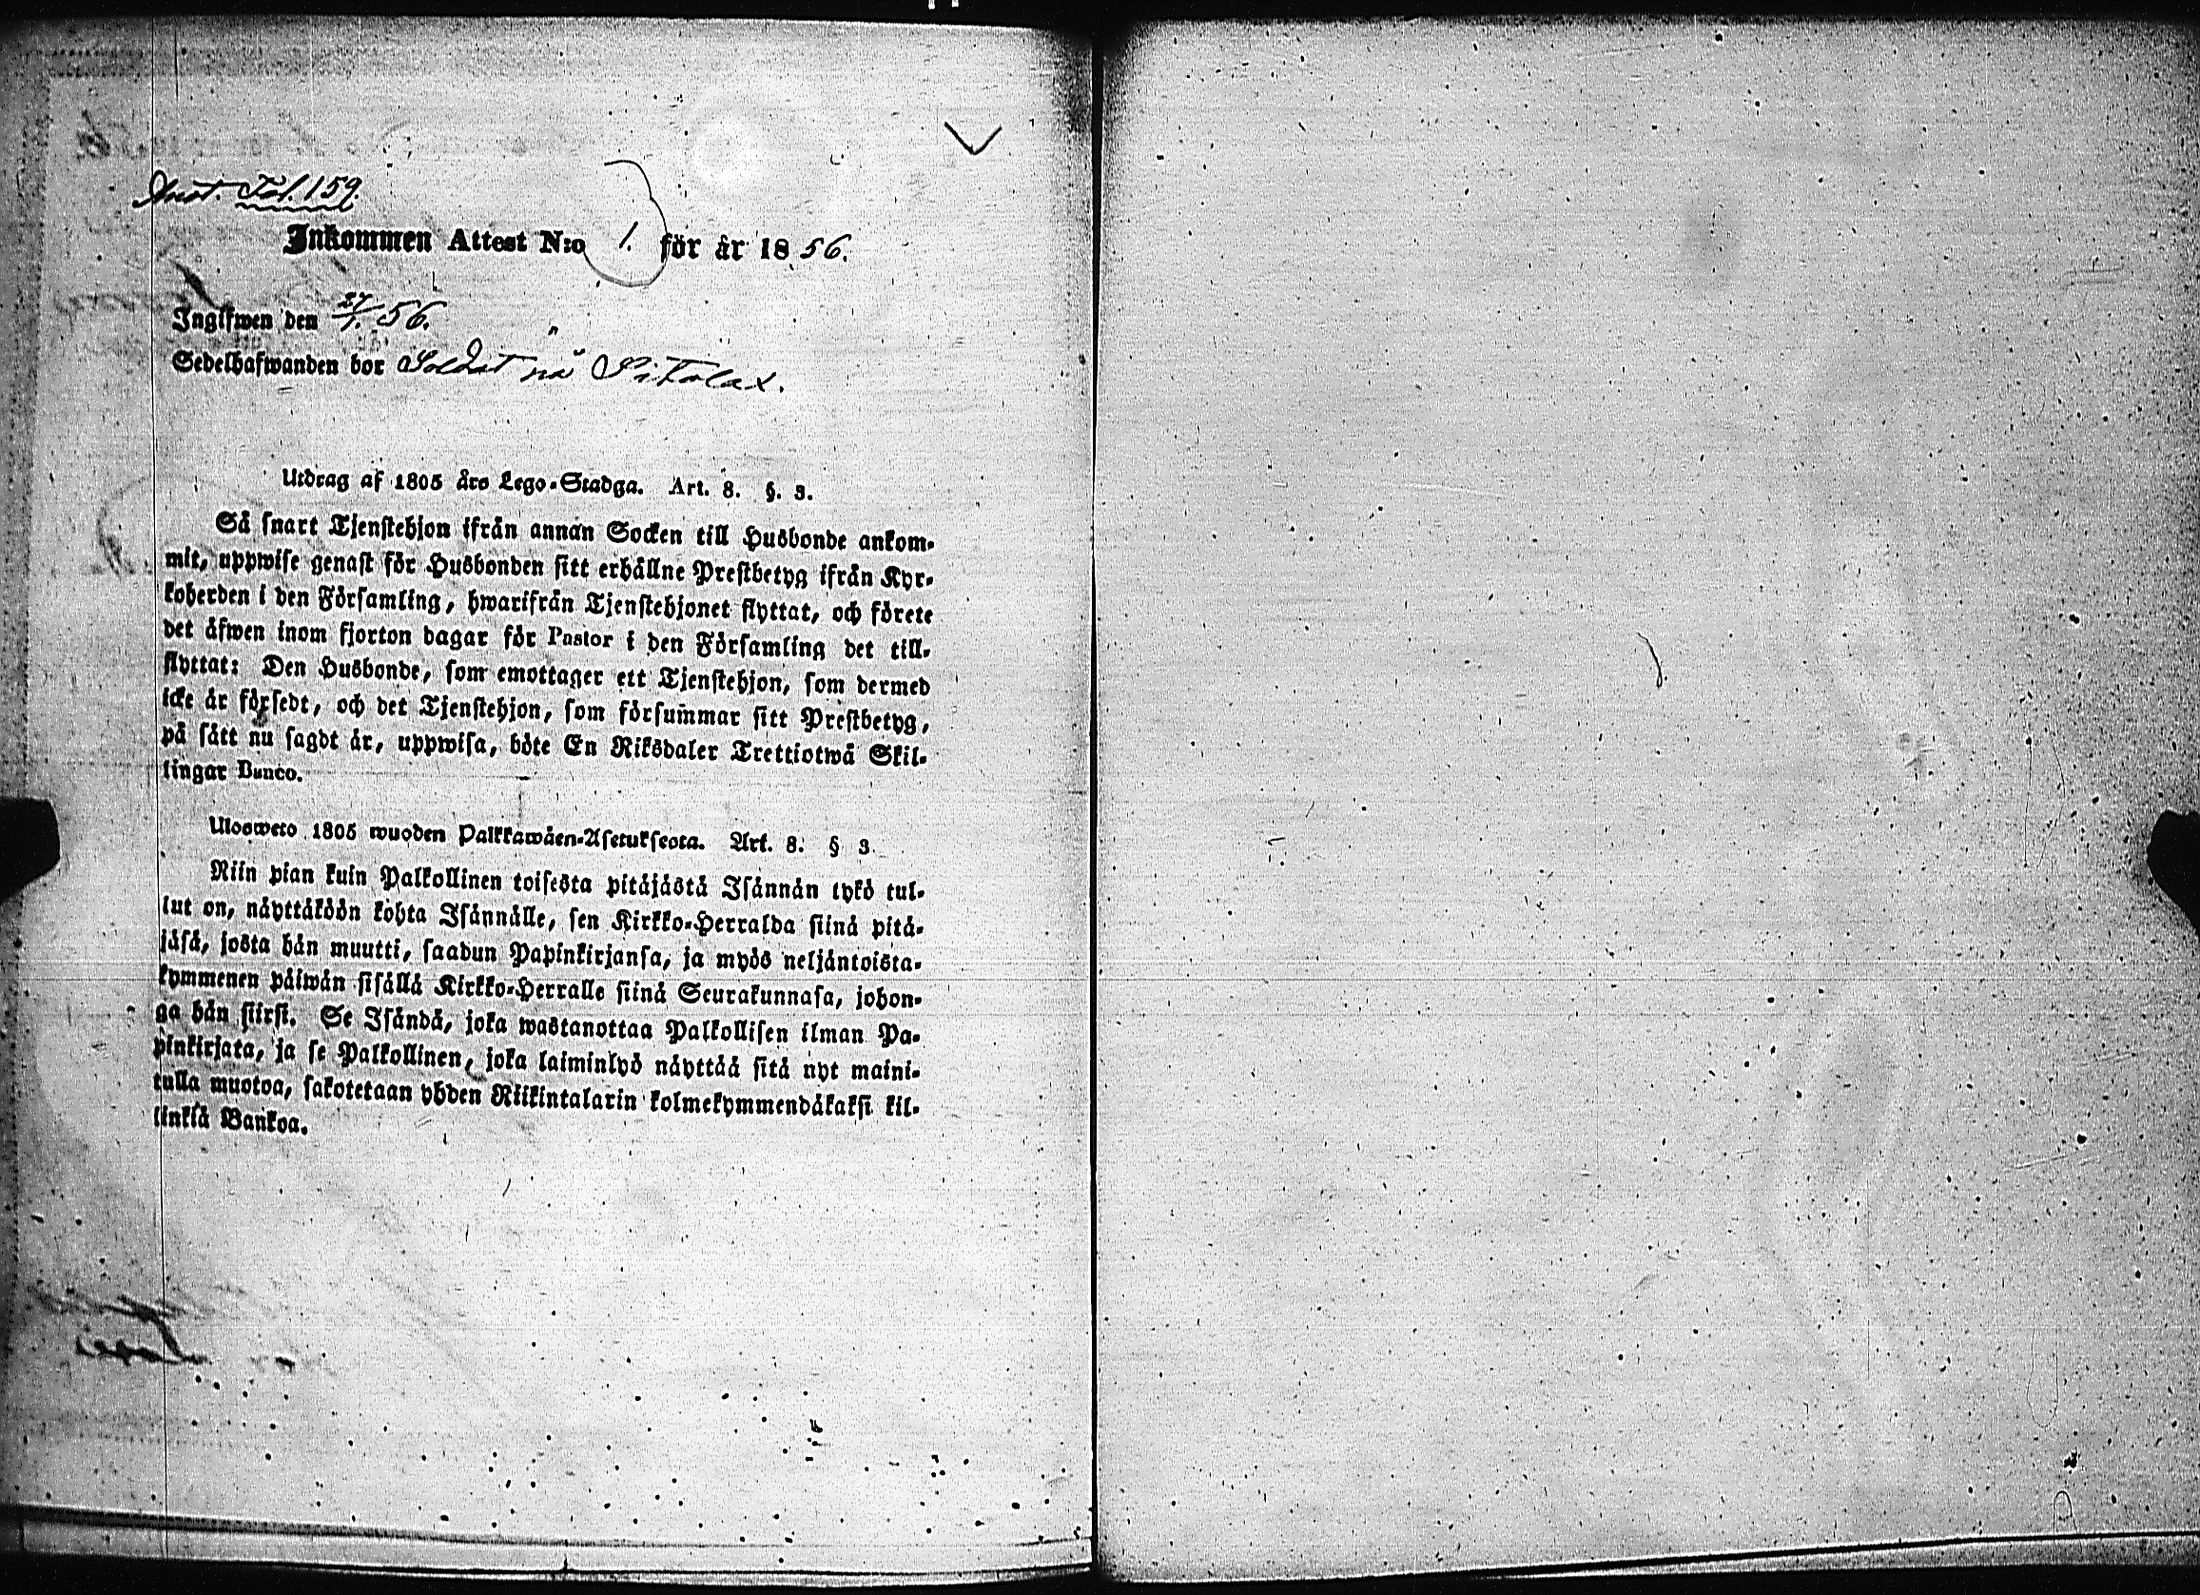 Anot. Fol. 159.
Inkommen Attest N:o 1. för år 1856.
Ingifwen den 27/1. 56.
Sedelhafwanden bor Soldat på Pitkolax.
Utdrag af 1805 års Lego-Stadga. Art. 8. §. 3.
Så snart Tjenstehjon ifrån annan Socken till Husbonde ankom-
mit, uppwise genast för Husbonden sitt erhållne Prestbetyg ifrån Kyr-
koherden i den Församling, hwarifrån Tjenstehjonet flyttat, och förete
det äfwen inom fjorton dagar för Pastor i den Församling det till-
flyttat: Den Husbonde, som emottager ett Tjenstehjon, som dermed
icke är försedt, och det Tjenstehjon, som försummar sitt Prestbetyg,
på sätt nu sagdt är, uppwisa, böte En Riksdaler Trettiotwå Skil-
lingar Banco.
Ulosweto 1805 wuoden Palkkawäen-Asetuksesta. Art. 8. § 3.
Niin pian kuin Palkollinen toisesta pitäjästä Isännän tykö tul-
lut on, näyttäköön kohta Isännälle, sen Kirkko-Herralda siinä pitä-
jäsä, josta hän muutti, saadun Papinkirjansa, ja myös neljäntoista-
kymmenen päiwän sisällä Kirkko-Herralle siinä Seurakunnasa, johon-
ga hän siirsi. Se Isändä, joka wastanottaa Palkollisen ilman Pa-
pinkirjata, ja se Palkollinen, joka laiminlyö näyttää sitä nyt maini-
tulla muotoa, sakotetaan yhden Riikintalarin kolmekymmendäkaksi kil-
linkiä Bankoa.